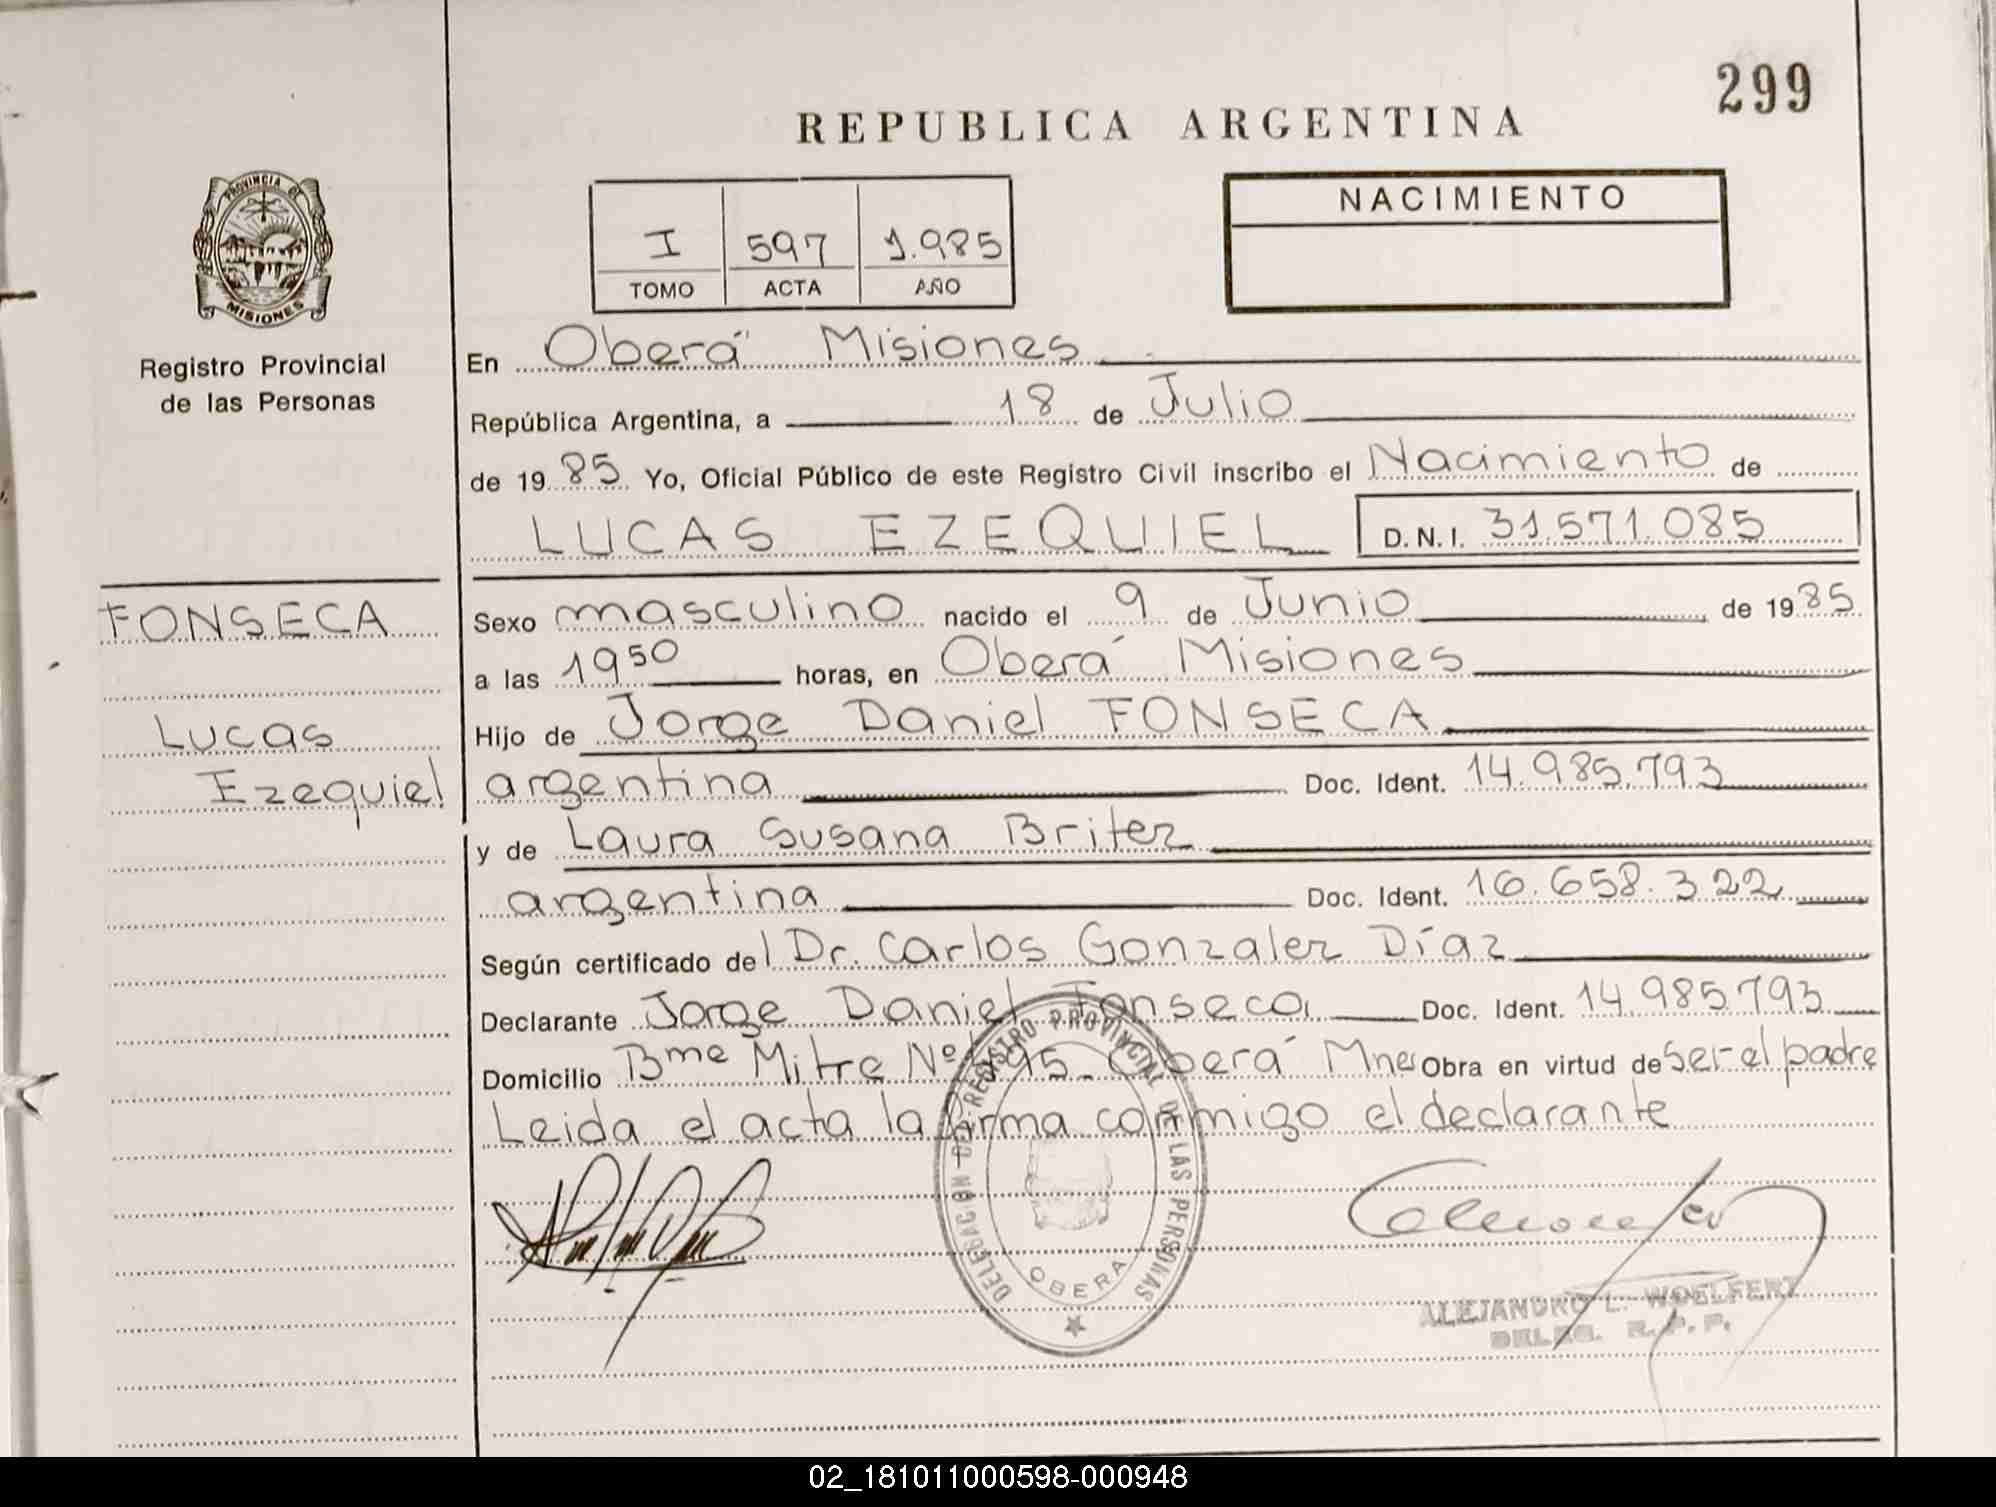 299
REPUBLICA ARGENTINA
PROVINCIA DE
MISIONES
Registro Provincial
de las Personas
I 597 1.985
TOMO ACTA AÑO
NACIMIENTO
En Oberá Misiones
República Argentina, a 18 de Julio
de 1985 Yo, Oficial Público de este Registro Civil inscribo el Nacimiento de
LUCAS EZEQUIEL D.N.I. 31.571.085
FONSECA
Lucas
Ezequiel
Sexo masculino nacido el 9 de Junio de 1985
a las 19 50 horas, en Oberá Misiones
Hijo de Jorge Daniel FONSECA
argentina Doc. Ident. 14.985.793
y de Laura Susana Britez
argentina Doc. Ident. 16.658.322
Según certificado del Dr. Carlos Gonzalez Díaz
Declarante Jorge Daniel Fonseca Doc. Ident. 14.985.793
Domicilio Bme Mitre Nº Oberá Mnes Obra en virtud de ser el padre
Leida el acta la firma conmigo el declarante
DELEGACION DEL REGISTRO PROVINCIAL DE LAS PERSONAS
OBERA
ALEJANDRO L. WOELFERT
DELEG. R. P. P.
02_181011000598-000948